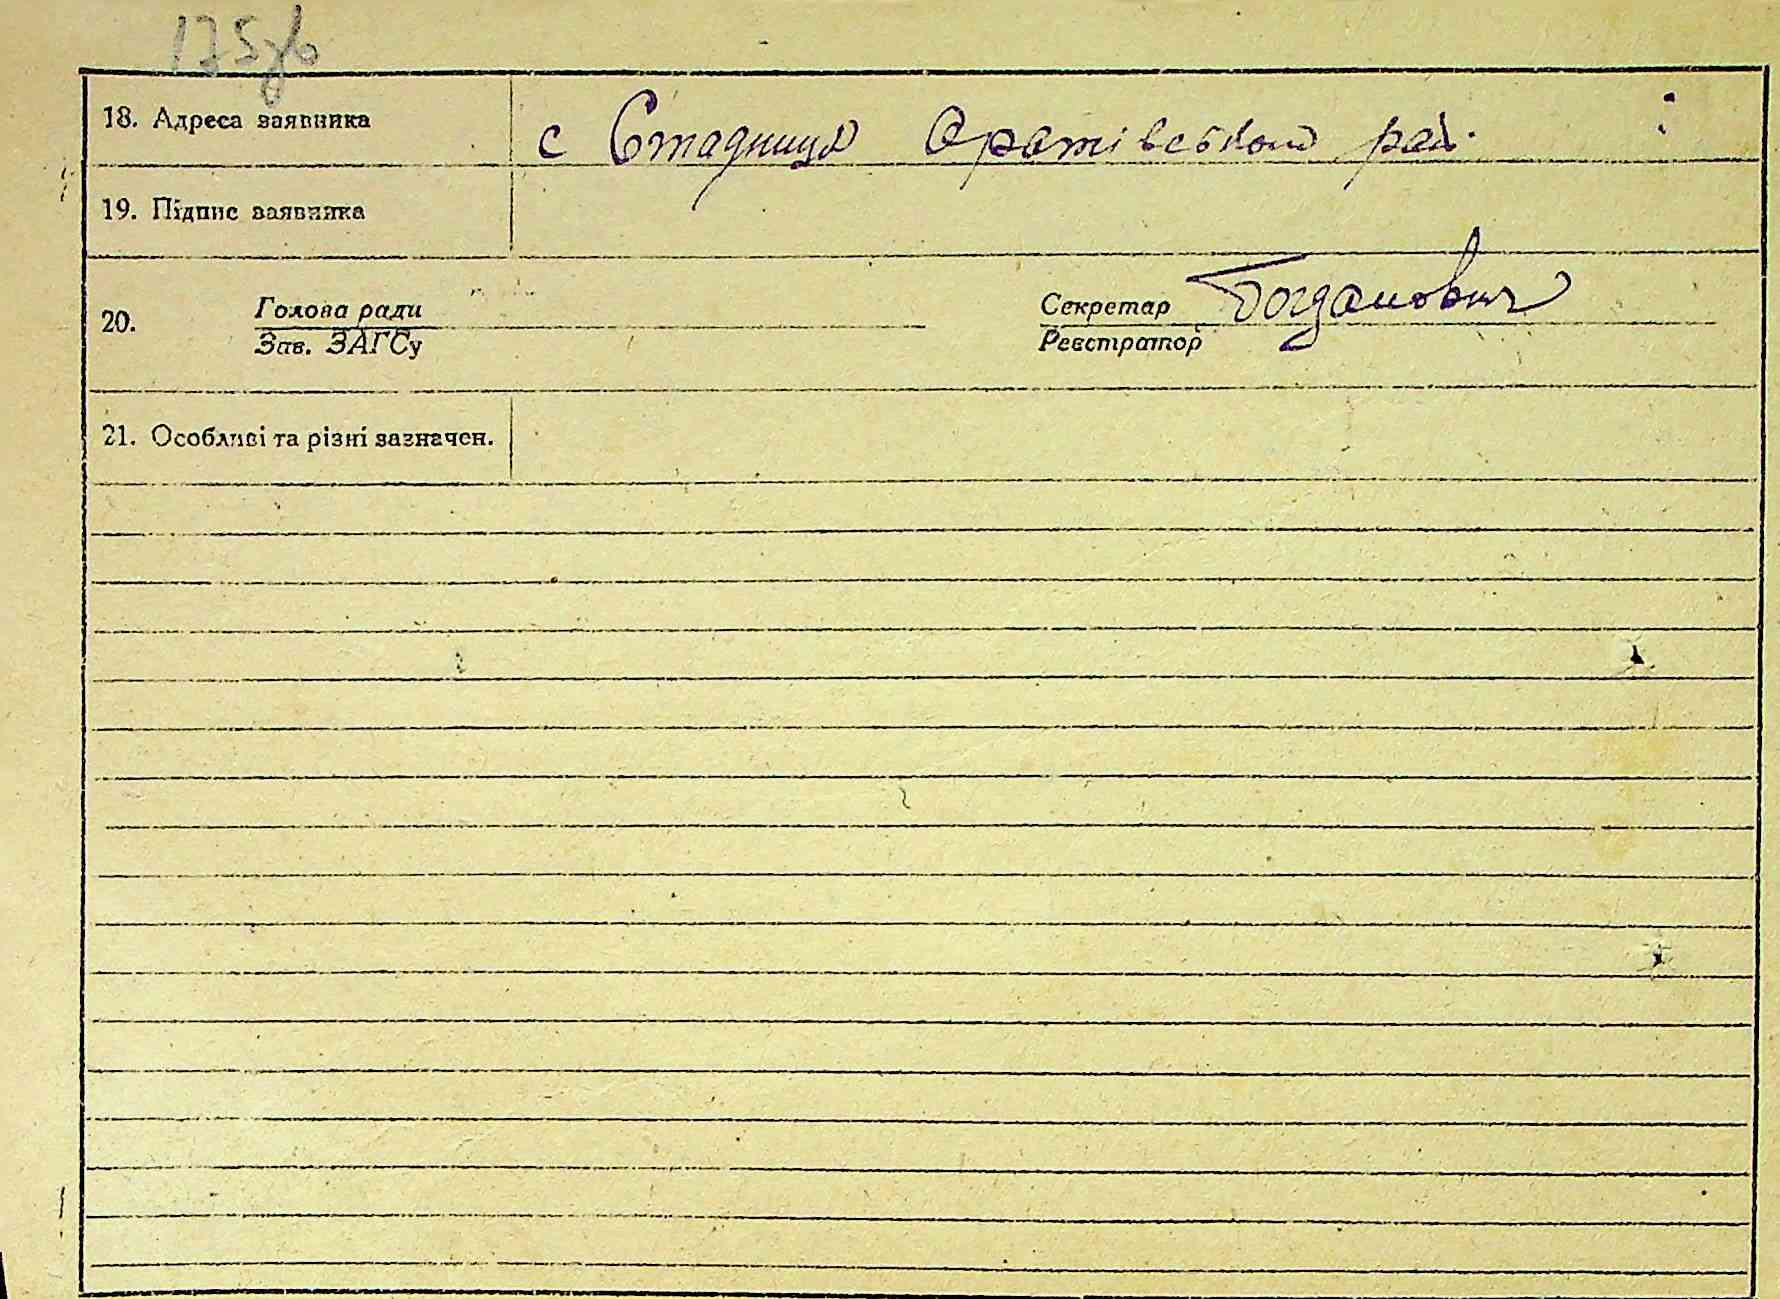 175зв
18. Адреса заявника с Стадниця Оратівського рай.
19. Підпис заявника
20. Голова ради Секретар Богданович
Зав. ЗАГСу Реєстратор
21. Особливі та різні зазначен.